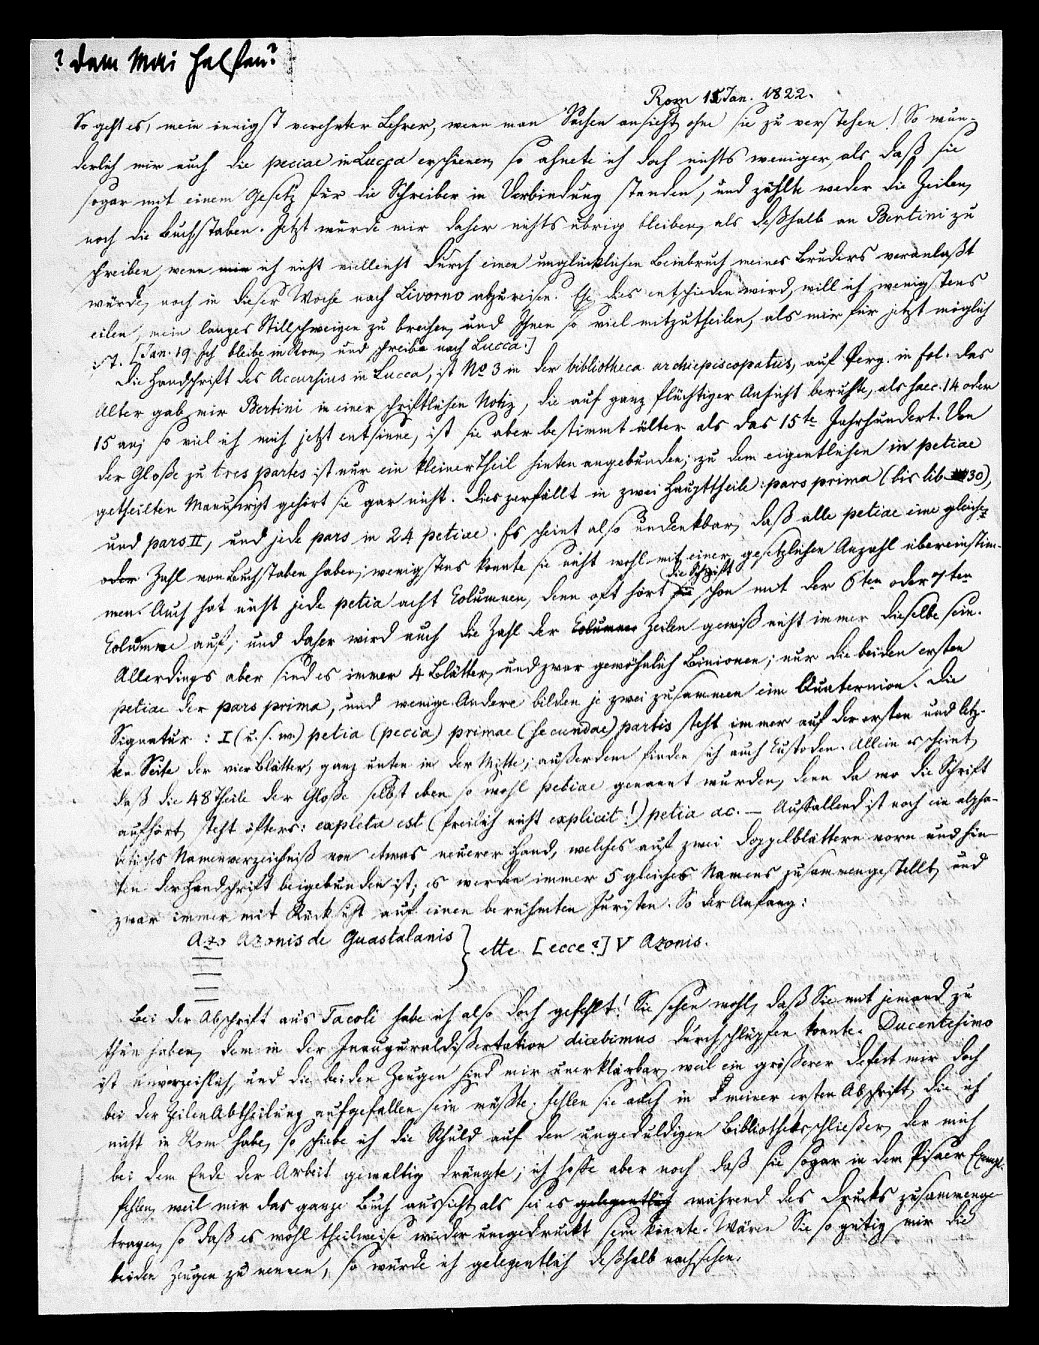 ? dem Mai helfen?
Rom 15 Jan. 1822.
So geht es, mein innigst verehrter Lehrer, wenn man Sachen ansieht, ohne sie zu verstehen! So wun-
derlich mir auch die peciae in Lucca erschienen, so ahnete ich doch nichts weniger, als daß sie
sogar mit einem Gesetz für die Schreiber in Verbindung standen, und zählte weder die Zeilen,
noch die Buchstaben. Jetzt würde mir daher nichts übrig bleiben, als deßhalb an Bertini zu
schreiben, wenn ich nicht vielleicht durch einen unglücklichen Beinbruch meines Bruders veranlaßt
würde, noch in dieser Woche nach Livorno abzureisen. Ehe dies entschieden wird, will ich wenigstens
eilen, mein langes Stillschweigen zu brechen, und Ihnen so viel mitzutheilen, als mir für jetzt möglich
ist. [Jan. 19. Ich bleibe in Rom, und schreibe nach Lucca.]
Die Handschrift des Accursius in Lucca, ist No 3 in der bibliotheca archiepiscopatus, auf Perg. in fol. Das
Alter gab mir Bertini in einer schriftlichen Notiz, die auf ganz flüchtiger Ansicht beruhte, als saec. 14 oder
15 an; so viel ich mich jetzt entsinne, ist sie aber bestimmt älter als das 15te Jahrhundert. Von
der Gloße zu tres partes ist nur ein kleiner Theil hinten angebunden; zu dem eigentlichen in petiae
getheilten Manuscript gehört sie gar nicht. Dies zerfällt in zwei Haupttheile: pars prima (bis lib. 30),
und pars II, und jede pars in 24 petiae. Es scheint also undenkbar, daß alle petiae eine gleiche
oder Zahl von Buchstaben haben; wenigstens konnte sie nicht wohl mit einer gesetzlichen Anzahl übereinstim-
men. Auch hat nicht jede petia acht Columnen, denn oft hört die Schrift schon mit der 6ten oder 7ten
Columne auf; und daher wird auch die Zahl der Zeilen gewiß nicht immer dieselbe sein.
Allerdings aber sind es immer 4 Blätter, und zwar gewöhnlich Binionen; nur die beiden ersten
petiae der pars prima, und wenige Andere bilden je zwei zusammen eine Quaternion. Die
Signatur: I (u. s. w.) petia (pecia) primae (secundae) partis steht immer auf der ersten und letz-
ten Seite der vier Blätter, ganz unten in der Mitte; außerdem finden sich auch Custoden. Allein es scheint,
daß die 48 Theile der Gloße selbst eben so wohl petiae genannt wurden, denn da wo die Schrift
aufhört, steht öfters: expleta est (freilich nicht explicit!) petia ac. — Auffallend ist noch ein alpha-
betisches Namenverzeichniß von etwas neuerer Hand, welches auf zwei Doppelblättern vorn und hin-
ten der Handschrift beigebunden ist; es werden immer 5 gleiches Namens zusammengestellt, und
zwar immer mit Rücksicht auf einen berühmten Juristen. So der Anfang:
Azo Azonis de Guastalanis } ette [ecce?] V Azonis.
Bei der Abschrift aus Tacoli habe ich also doch gefehlt! Sie sehen wohl, daß Sie mit jemand zu
thun haben, dem in der Inauguraldissertation dicebimus durchschlüpfen konnte. Ducentesimo
ist unverzeihlich und die beiden Zeugen sind mir unerklärbar, weil ein größerer Defect mir doch
bei der Zeilen Abtheilung aufgefallen sein müßte. Fehlen sie auch in meiner ersten Abschrift, die ich
nicht in Rom habe, so schiebe ich die Schuld auf den ungeduldigen Bibliothekschließer, der mich
bei dem Ende der Arbeit gewaltig drängte; ich hoffe aber noch, daß sie sogar in dem Pisaer Exempl.
fehlen, weil mir das ganze Buch aussieht, als sei es während des Drucks zusammenge-
tragen, so daß es wohl theilweise wieder umgedruckt sein könnte. Wären Sie so gütig, mir die
beiden Zeugen zu nennen, so würde ich gelegentlich deßhalb nachsehen.